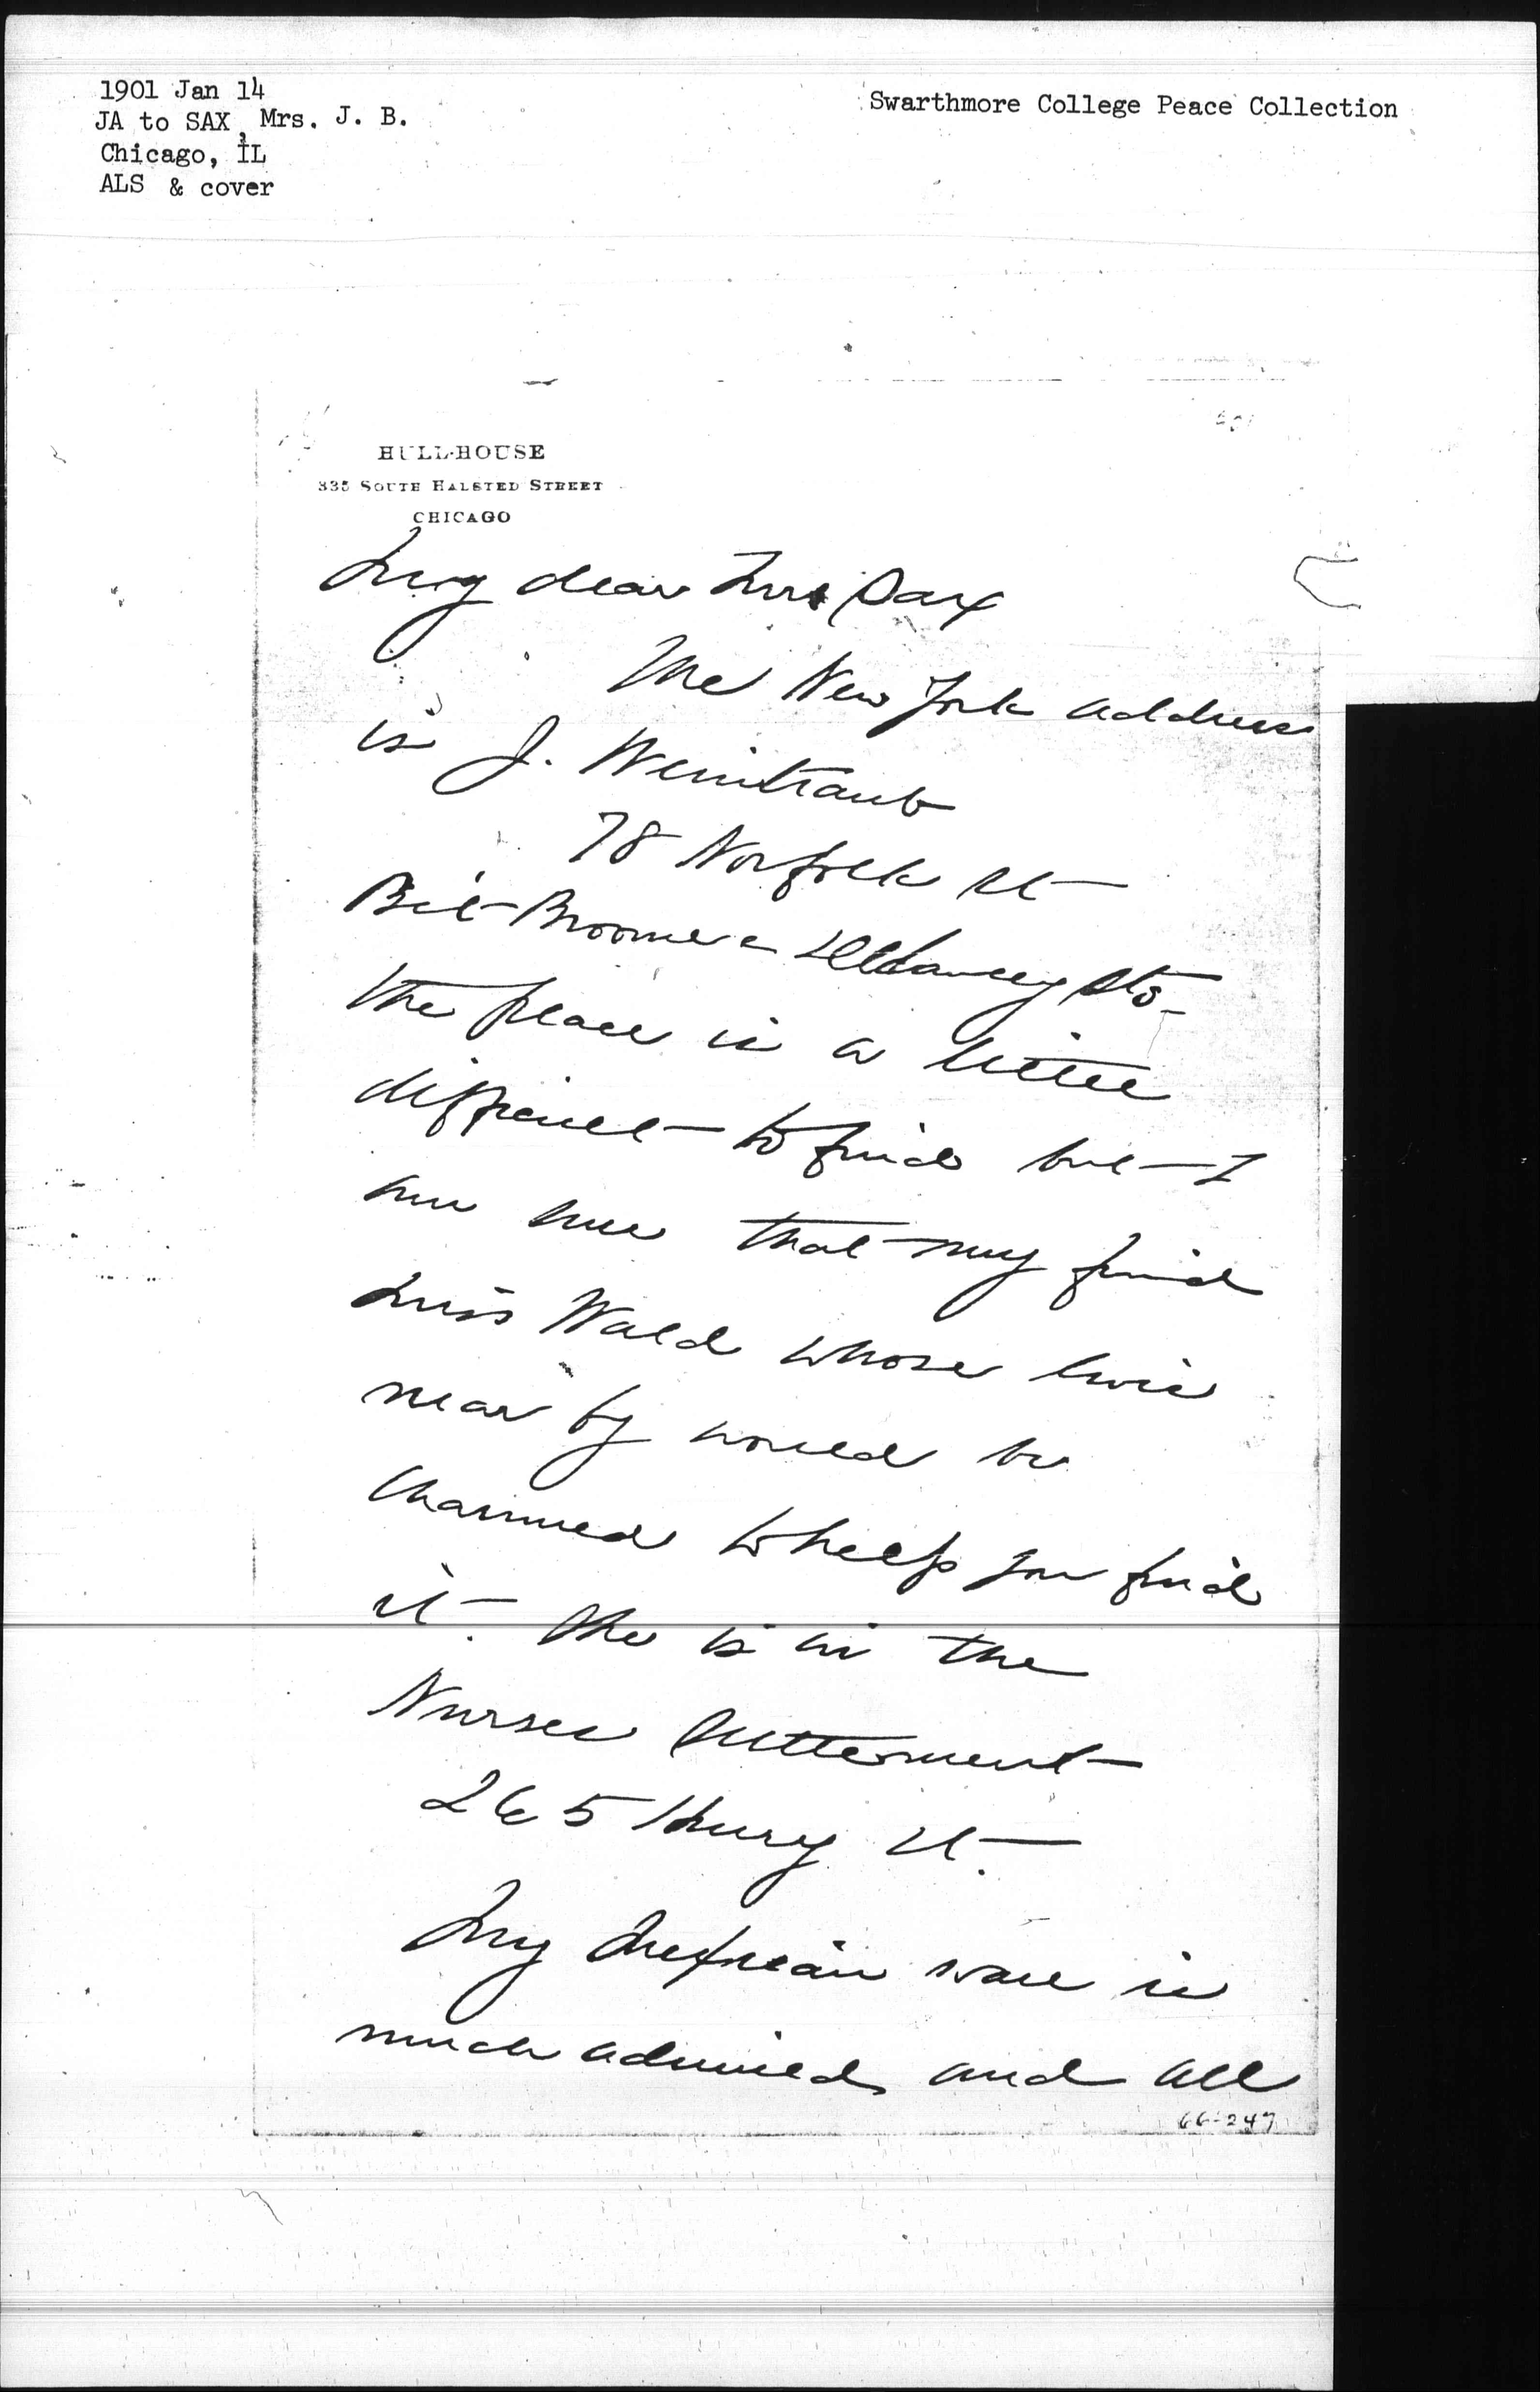 1901 Jan 14
JA to SAX, Mrs. J. B.
Chicago, IL
ALS & cover
Swarthmore College Peace Collection
HULL-HOUSE
335 SOUTH HALSTED STREET
CHICAGO
My dear Mrs Sax
The New York address
is J. Weintraub
78 Norfolk St
Bet Broome & Delancey Sts-
The place is a little
difficult to find but I
am sure that my friend
Miss Wald whose lives
near by would be
charmed to help you find
it- She is in the
Nurses Settlement
265 Henry St.
My Mexican ware is
much admired and all
66-247